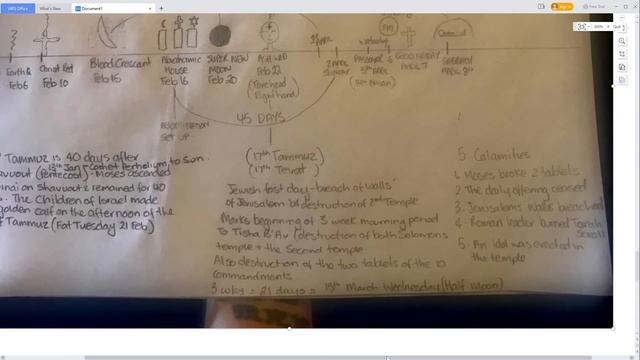 WPS Office
What's New
Document1
Sign in
Free Trial
100%
Earth Q
Feb 6
Feb 10
Blood Crescent
Feb 15
Abrahamic
House
Feb 16
SUPER NEW
MOON
Feb 20
Feb 22
(Forehead
Right hand)
45 DAYS
SET UP
Tammuz is 40 days after
(Pentecost) - Moses ascended
on Shavuout & remained for 40
. The Children of Israel made
golden calf on the afternoon of the
Tammuz (Fat Tuesday 21 Feb)
(17th Tammuz)
(17th Tevat)
Jewish fast day - breach of walls
of Jerusalem b4 destruction of 2nd Temple
Marks beginning of 3 week mourning period
To Tisha B'Av (destruction of both Solomons
temple + the Second temple
Also destruction of the two tablets of the 10
commandments
3 wks = 21 days = 15th March Wednesday (Half Moon)
5 Calamities
1. Moses broke 2 tablets
2. The daily offering ceased
3. Jerusalems walls breached
4. Roman leader burned Torah
Scroll
5. An Idol was erected in
the temple